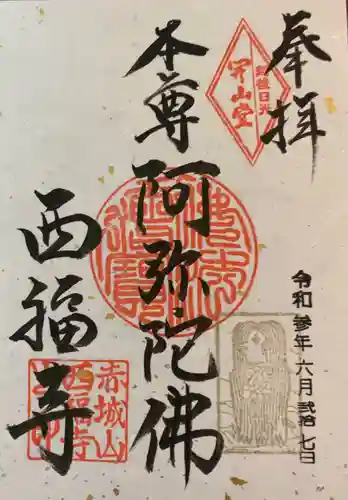 奉拝
開山堂
令和参年六月弐拾七日
本尊
阿弥陀佛
西福寺
赤城山
西福寺